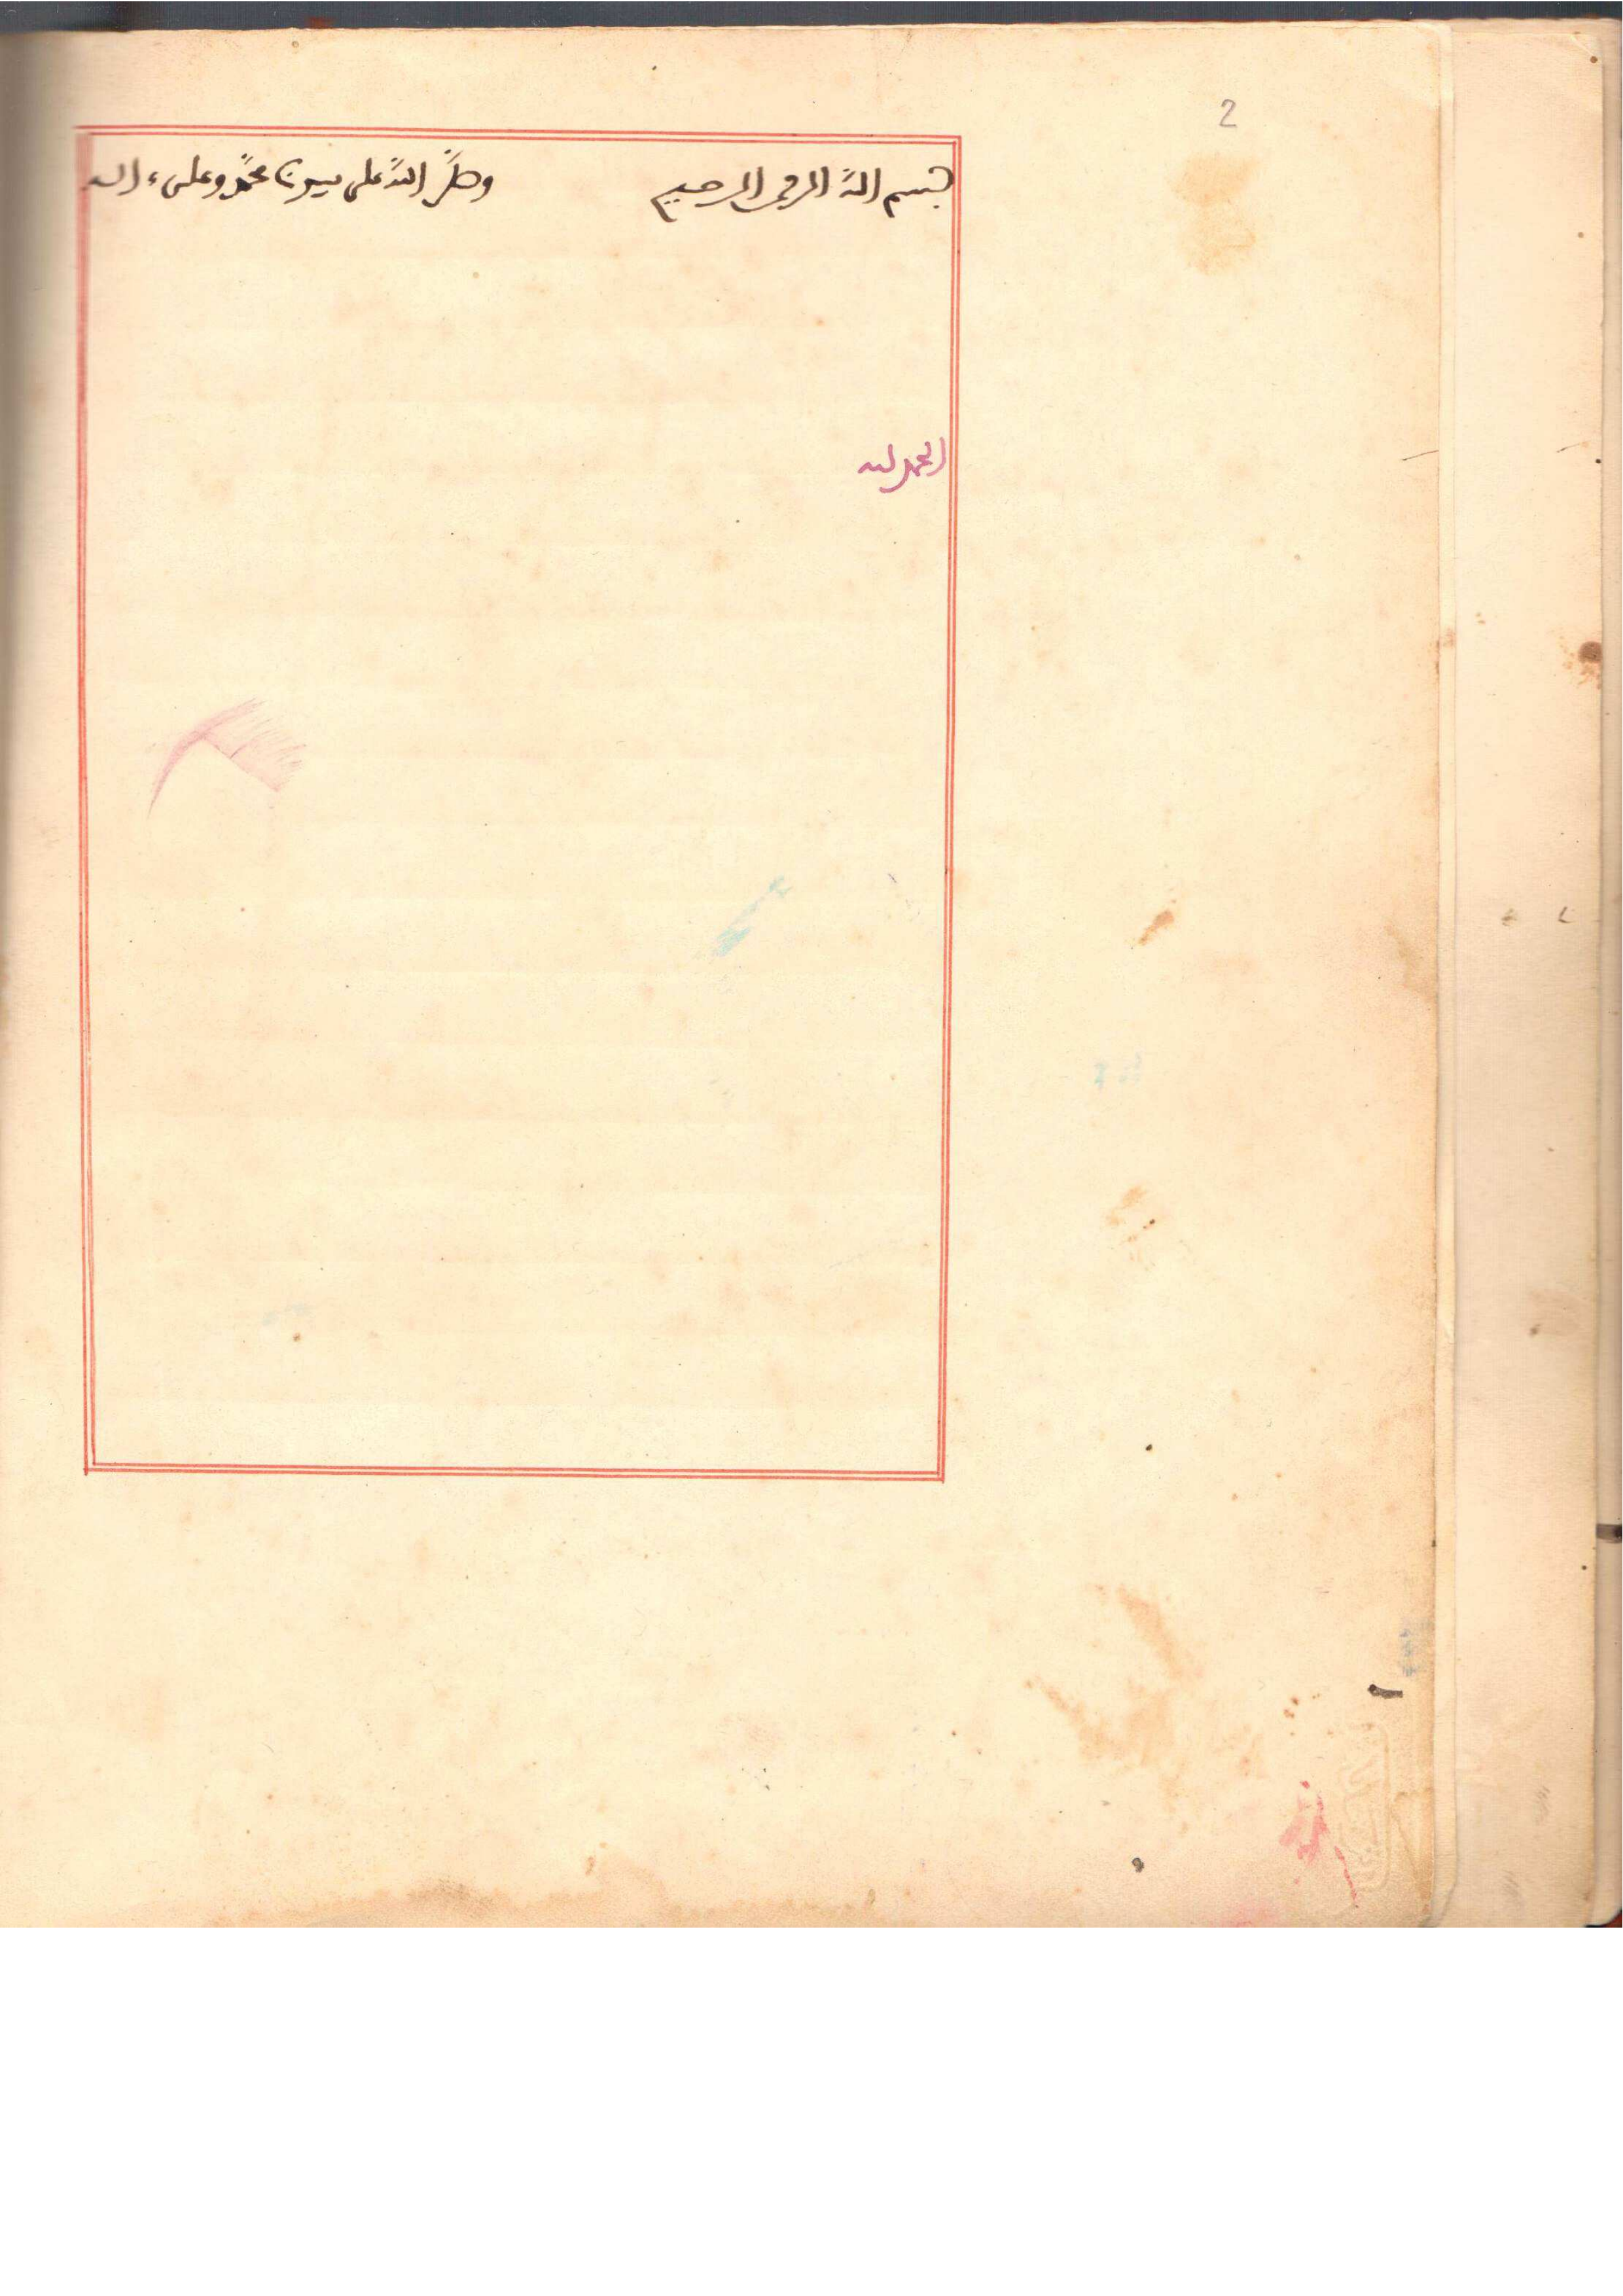 2
بسم الله الرحمن الرحيم وصلى الله على سيدنا محمد وعلى ءاله
الحمد لله